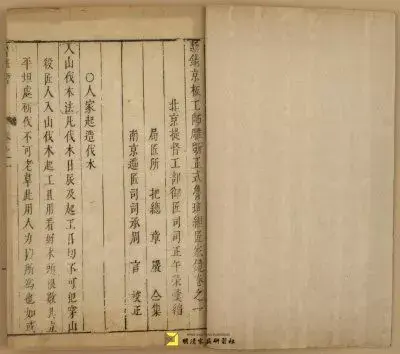 新鐫京板工師雕斲正式魯班經匠家鏡卷之一
北京提督工部御匠司司正午榮彙編
局匠所把總章嚴仝集
南京遞匠司司承周言校正
○人家起造伐木
入山伐木法凡伐木日辰及起工日切不可犯穿山
殺匠人入山伐木起工且用看好木頭根數具立
平坦處斫伐不可老草此用人力以所為也如或
明清家具研究